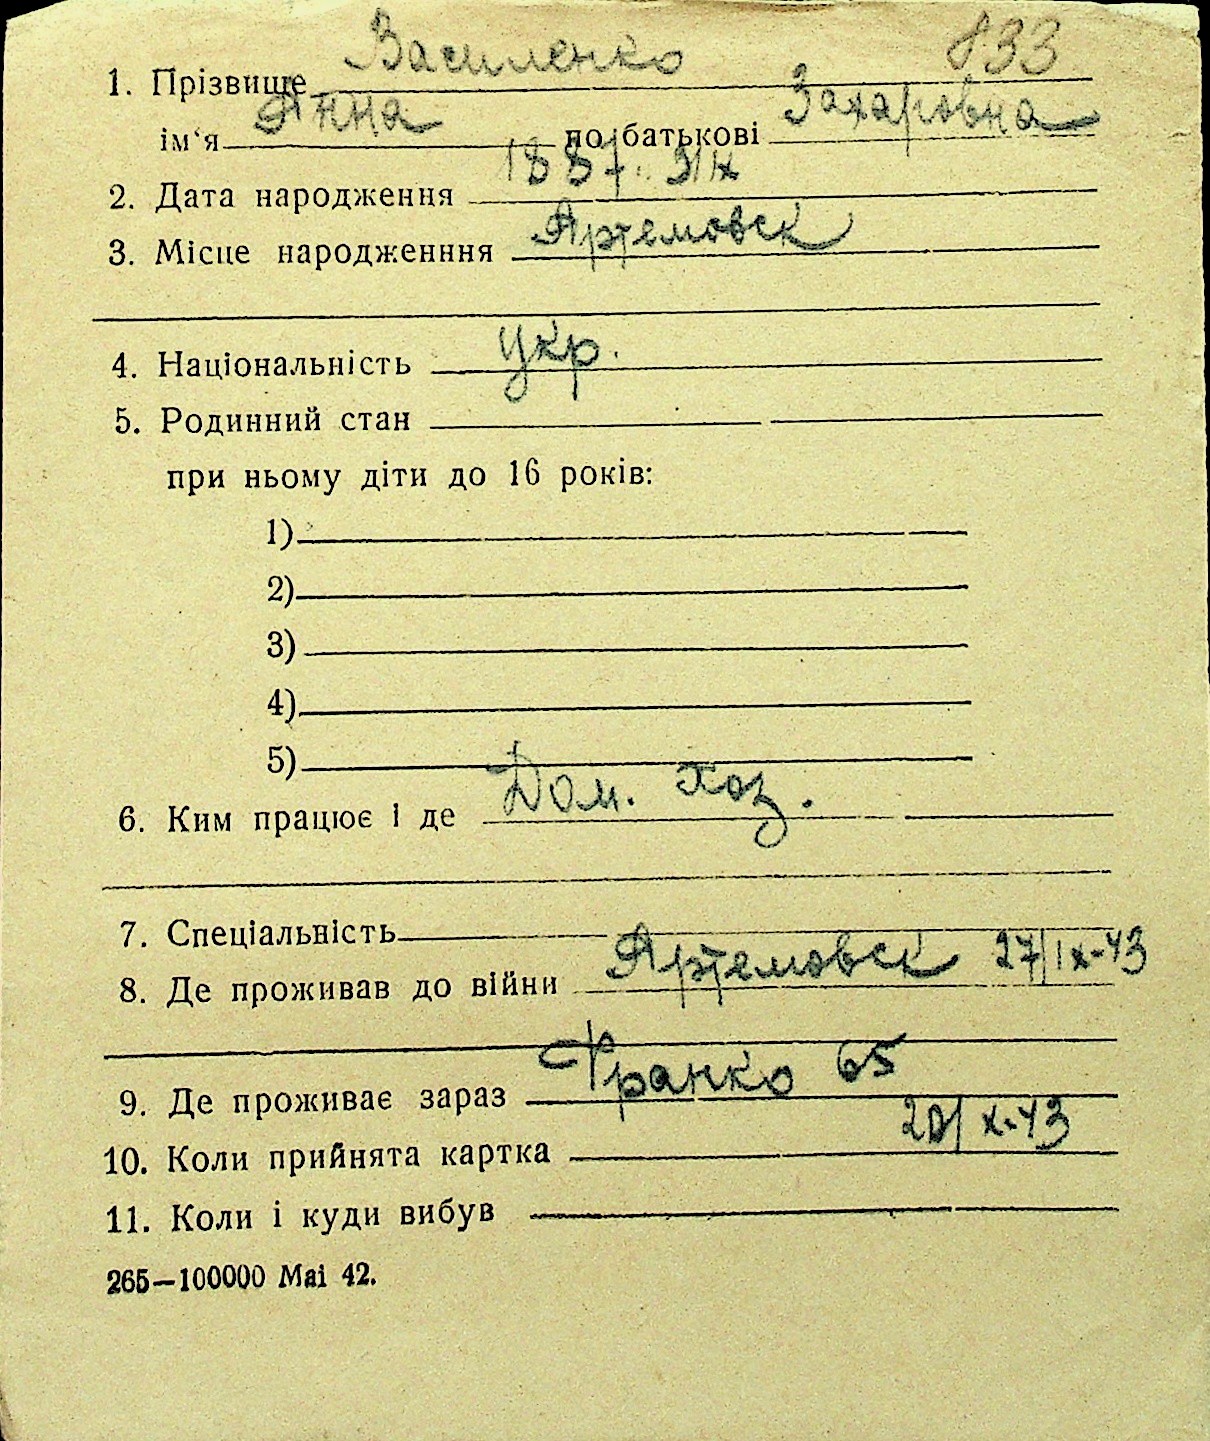 1. Прізвище Василенко 833
ім‘я Анна по батькові Захаровна
2. Дата народження 1887.
3. Місце народженння Артемовск
4. Національність укр.
5. Родинний стан
при ньому діти до 16 років:
1)
2)
3)
4)
5)
6. Ким працює і де Дом. хоз.
7. Спеціальність
8. Де проживав до війни Артемовск 27/IX-43
9. Де проживає зараз Франко 65
10. Коли прийнята картка X-43
11. Коли і куди вибув
265—100000 Mai 42.